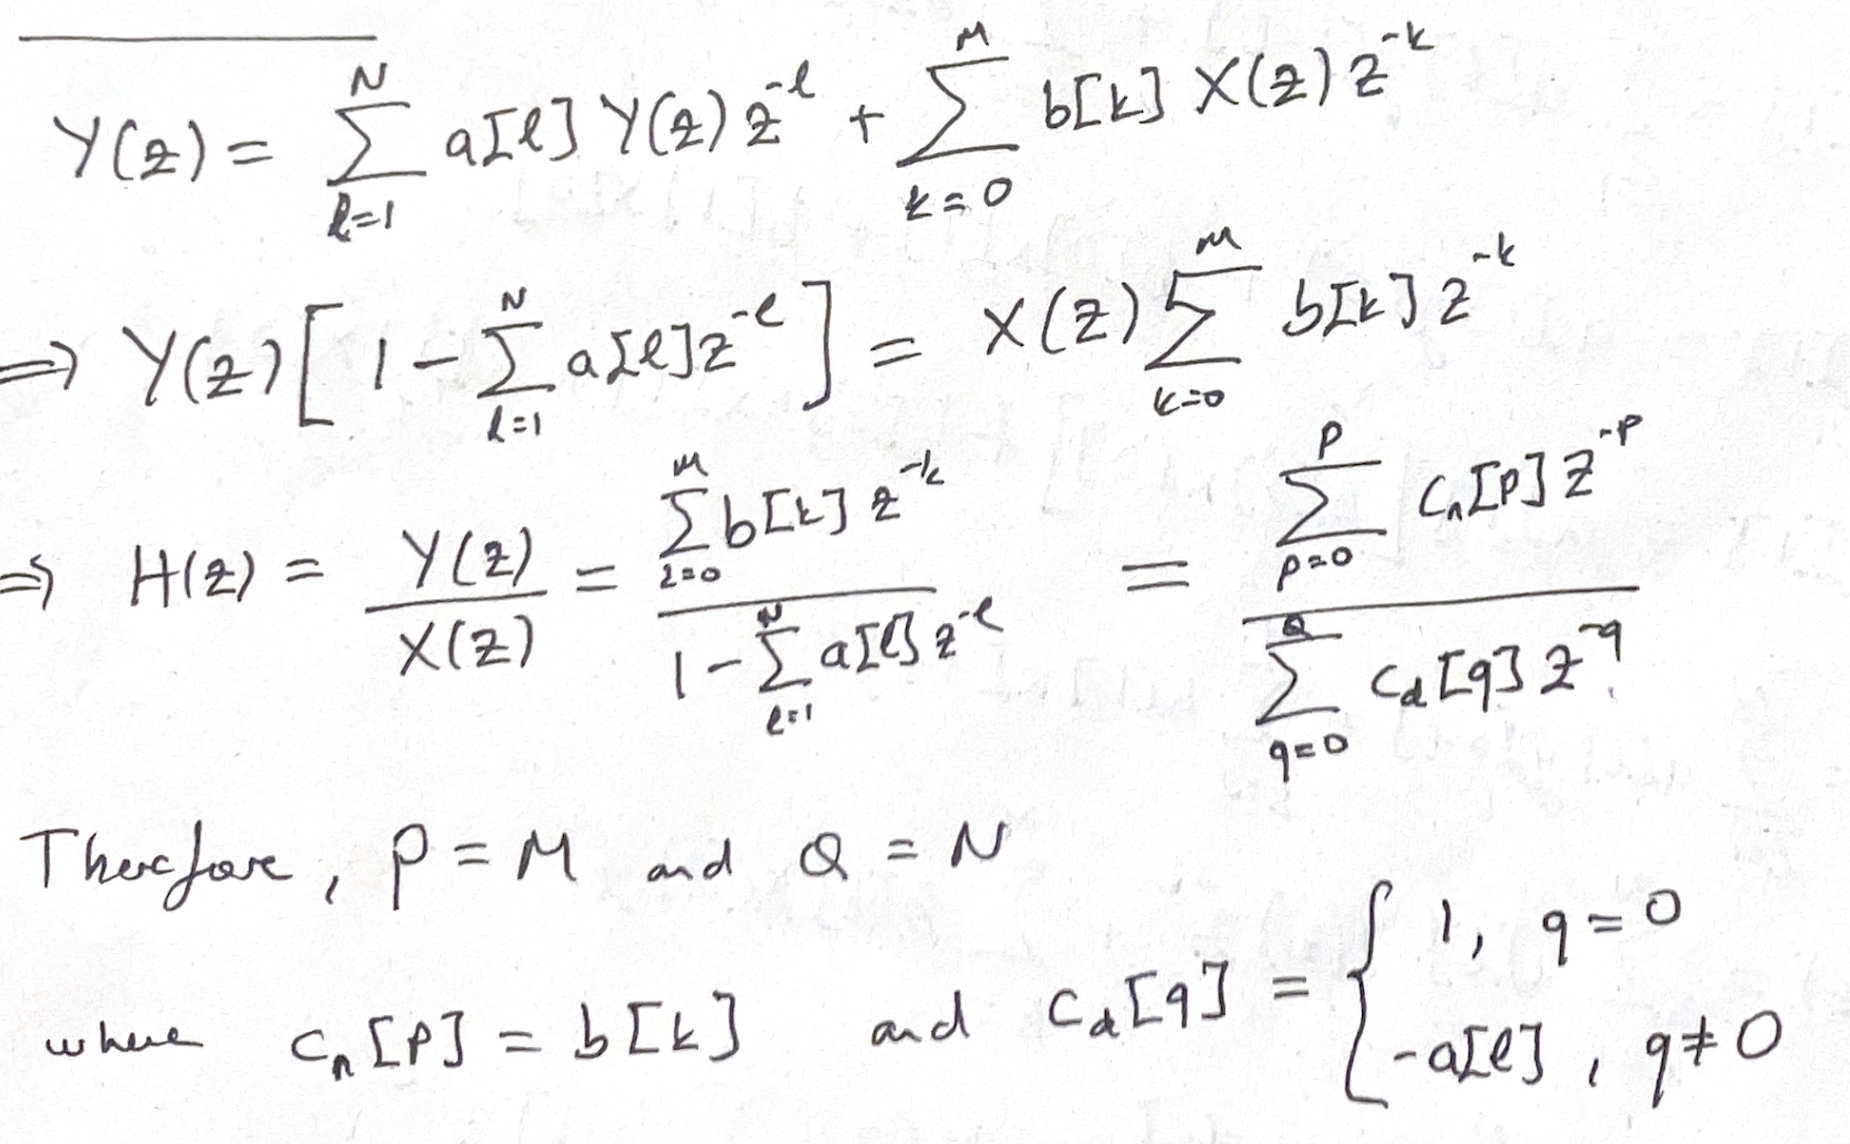 Y(z) = \sum_{l=1}^{N} a[l] Y(z) z^{-l} + \sum_{k=0}^{M} b[k] X(z) z^{-k}
⇒ Y(z) [ 1 - \sum_{l=1}^{N} a[l] z^{-l} ] = X(z) \sum_{k=0}^{M} b[k] z^{-k}
⇒ H(z) = \frac{Y(z)}{X(z)} = \frac{\sum_{l=0}^{M} b[k] z^{-k}}{1 - \sum_{l=1}^{N} a[l] z^{-l}} = \frac{\sum_{p=0}^{P} c_n[p] z^{-p}}{\sum_{q=0}^{Q} c_d[q] z^{-q}}.
Therefore, P = M and Q = N
where c_n[p] = b[k] and c_d[q] = \begin{cases} 1, & q = 0 \\ -a[l], & q ≠ 0 \end{cases}